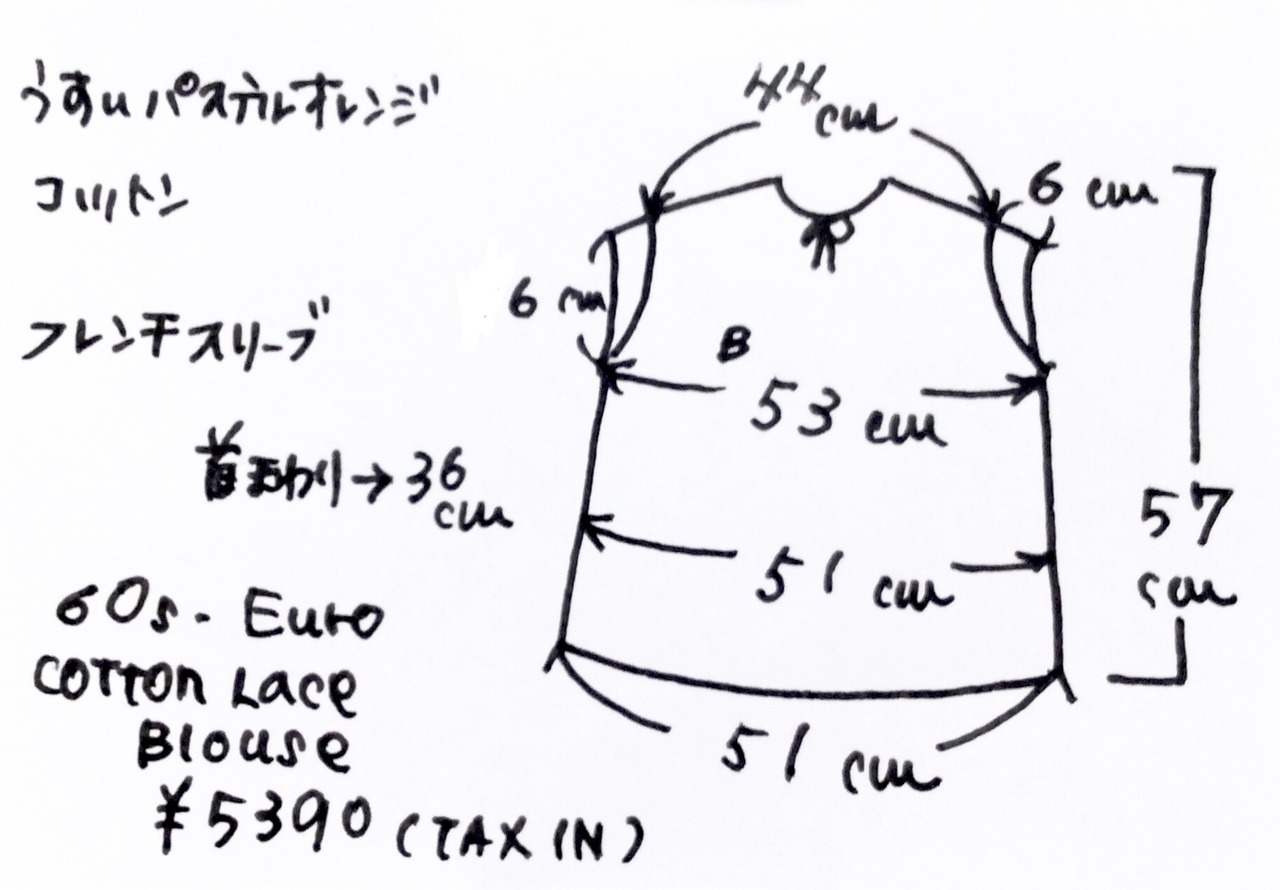 うすいパステルオレンジ
コットン
フレンチスリーブ
首まわり→36cm
60s. Euro
COTTON Lace
Blouse
¥5390 (TAX IN)
44cm
6 cm
6 cm
B
53 cm
51 cm
51 cm
57 cm